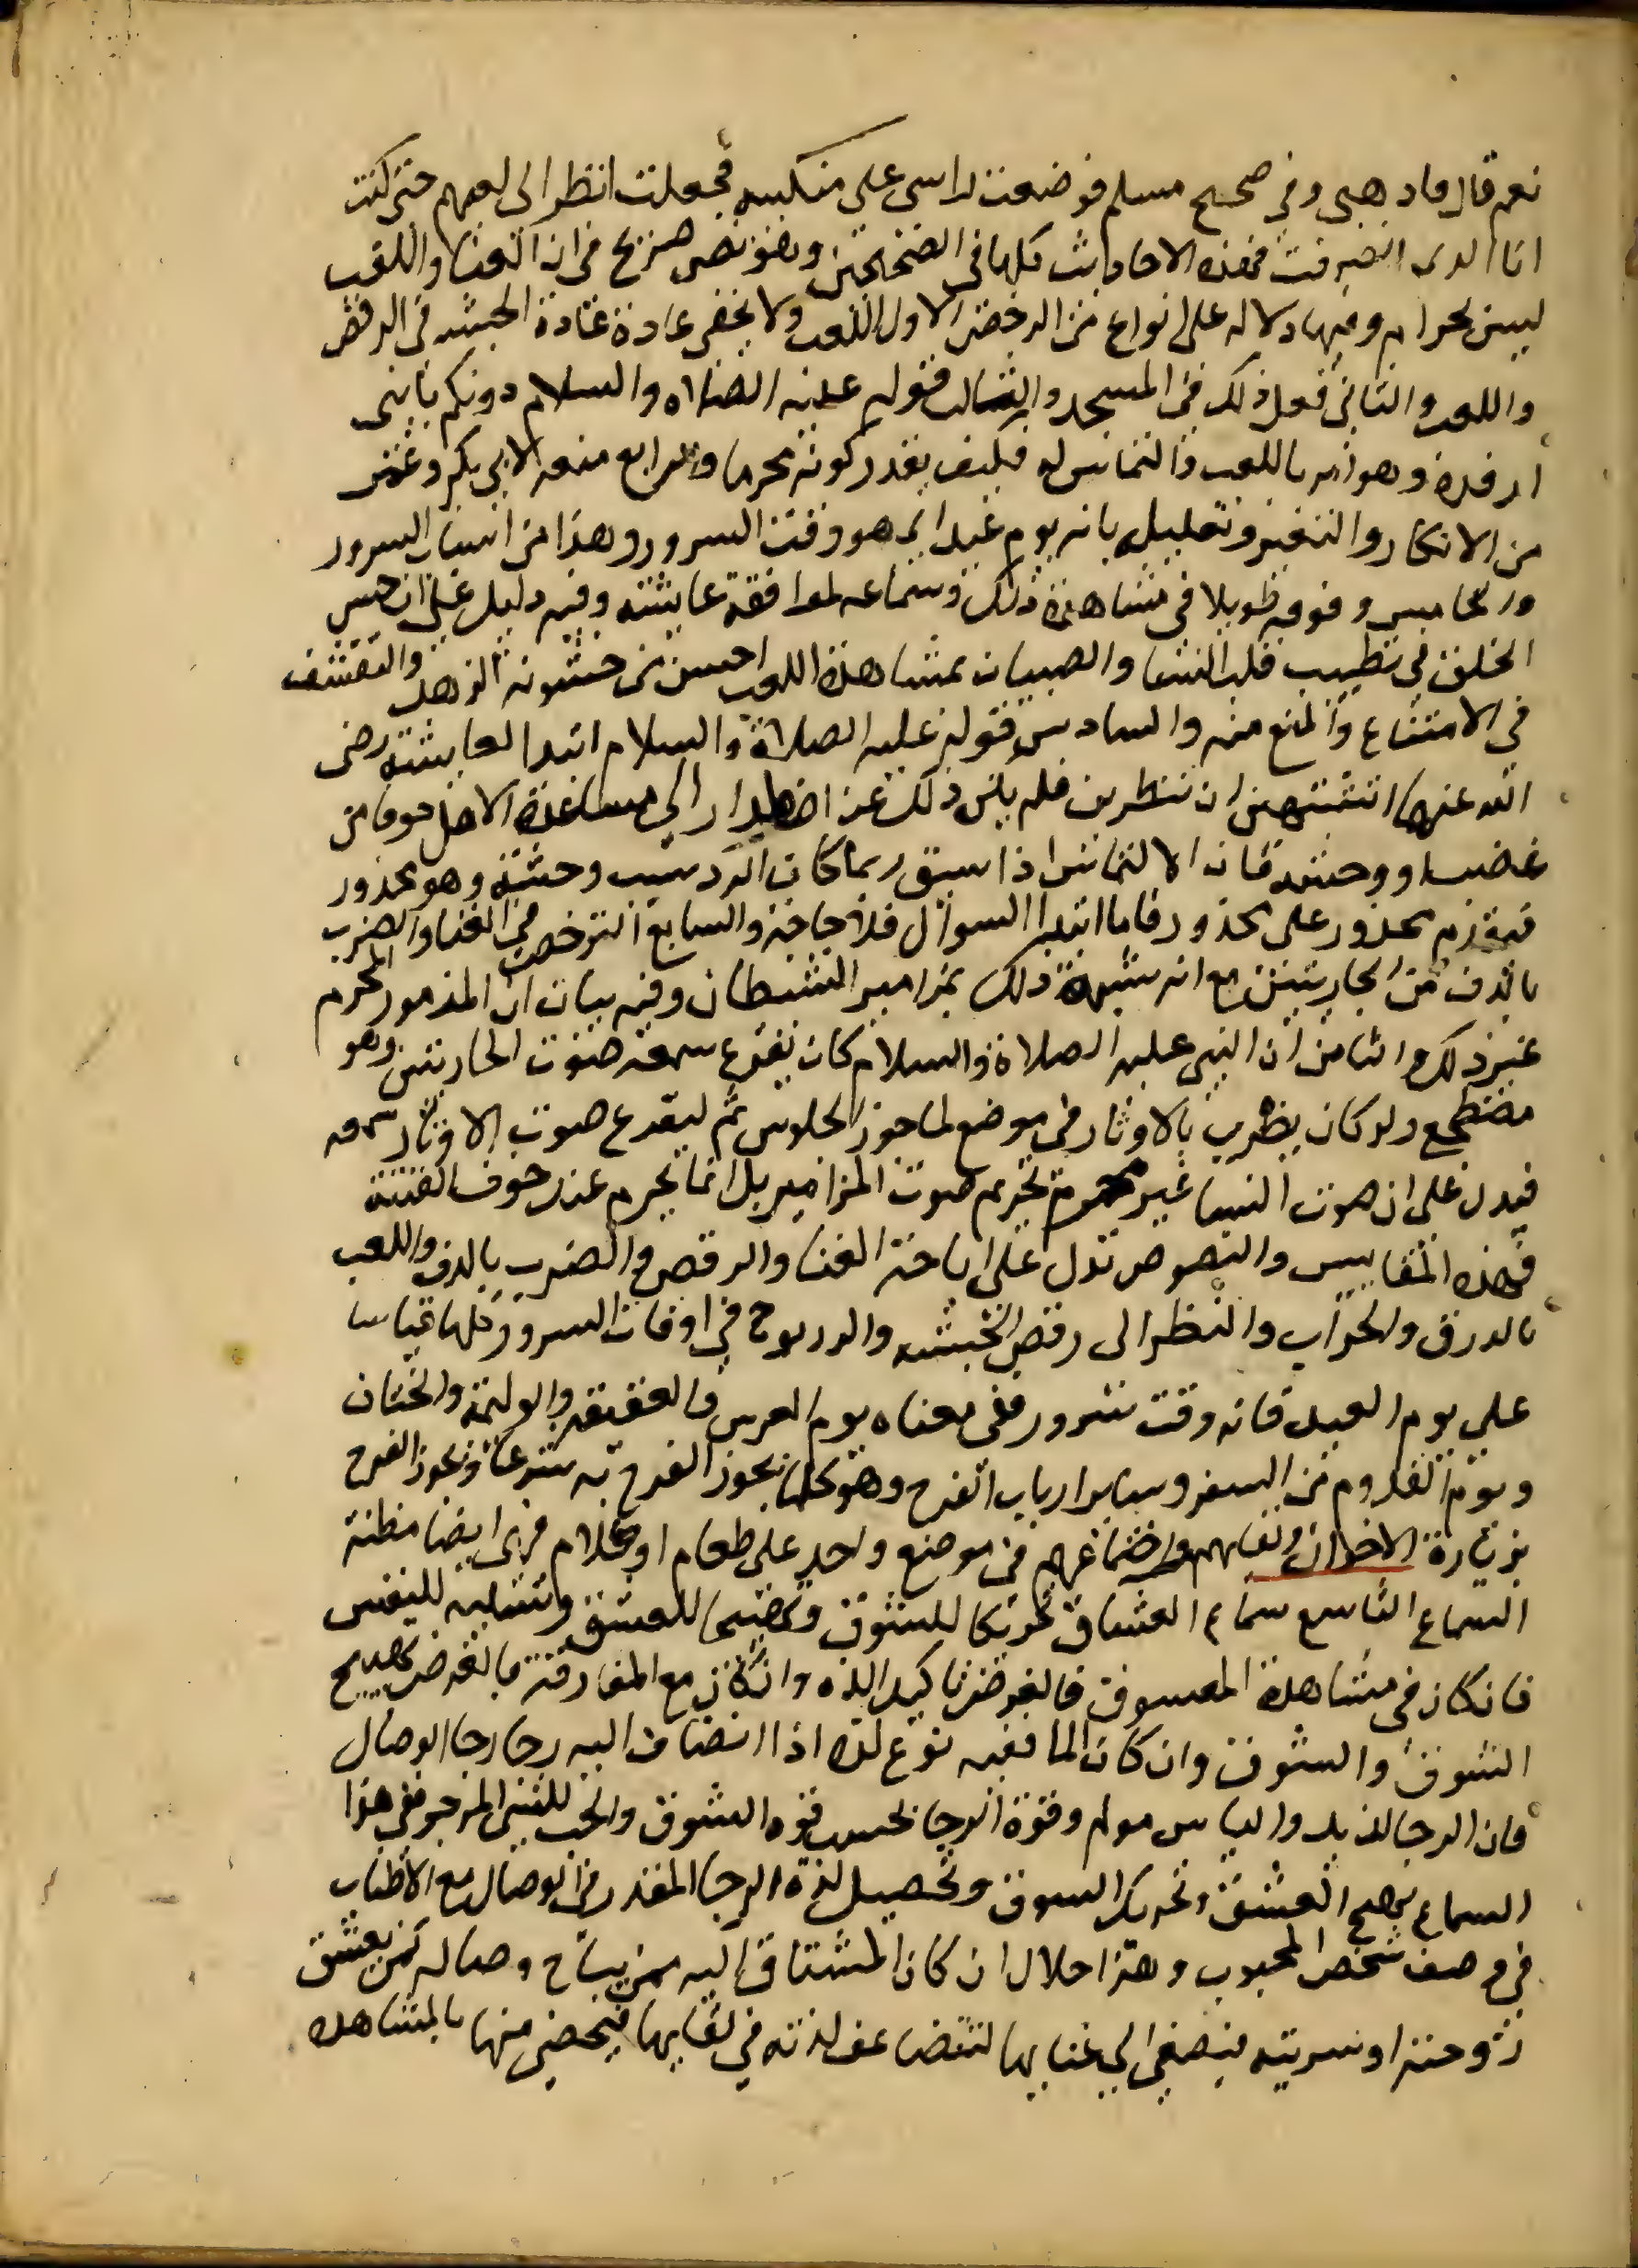 نعم قال فاذهبي وفي صحيح مسلم فوضعت راسي على منكبيه فجعلت انظر الى لعبهم حتى كنت
انا الذى انصرفت فهذه الاحاديث كلها في الصحيحين وهو نص صريح في ان الغنا واللعب
ليس بحرام وفيها دلاله على انواع من الرخص الاول اللعب ولا يخفى عادة الحبشه في الرقص
واللعب والثاني فعل ذلك في المسجد والثالث قوله عليه الصلاه والسلام دونكم يا بني
ارفدة وهو امر باللعب والتماس له فكيف يقدر كونه محرما والرابع منعه لابي بكر وعمر
من الانكار والتغير وتعليله بانه يوم عيد اي هو وقت السرور وهذا من اسباب السرور
والخامس وقوفه طويلا في مشاهدة ذلك وسماعه لموافقة عايشته وفيه دليل على ان حسن
الخلق في تطييب قلب النسا والصبيان بمشاهدة اللعب احسن من خشونه الزهد والتقشف
في الامتناع والمنع منه والسادس قوله عليه الصلاة والسلام ابتدا لعايشته رضى
الله عنها اتشتهين ان تنظرين فلم يكن ذلك عن اضطرار الي مساعدة الاهل خوفا من
غضب او وحشة فان الالتماس اذا سبق ربما كان الرد سبب وحشة وهو محذور
فيقدم محذور على محذور فاما ابتدا السوال فلا حاجة والسابع الترخص في الغنا والضرب
بالدف من الجاريتين مع انه شبهه ذلك بمزامير الشيطان وفيه بيان ان المزمور المحرم
غير ذلك والثامن ان النبي عليه الصلاة والسلام كان يقرع سمعه صوت الجاريتين وهو
مضطجع ولو كان يضرب بالاوتار في موضع لما جوز الجلوس ثم ليقرع صوت الاوتار سمعه
فيدل على ان صوت النسا غير محرم تحريم صوت المزامير بل انما يحرم عند خوف الفتنة
فهذه المقاييس والنصوص تدل على اباحة الغنا والرقص والضرب بالدف واللعب
بالدرق والحراب والنظر الى رقص الحبشه والزنوج في اوقات السرور كلها قياسا
على يوم العيد فانه وقت سرور وفي معناه يوم العرس والعقيقه والوليمة والختان
ويوم القدوم من السفر وساير ارباب الفرح وهو كلما يجوز الفرح به شرعا ويجوز الفرح
بزيارة الاخوان ولقايهم واجتماعهم في موضع واحد على طعام او كلام فهى ايضا مظنة
السماع التاسع سماع العشاق تحريكا للشوق وتهييجا للعشق وتسلية للنفس
فان كان في مشاهدة المعسوق فالغرض تاكيد اللذه وان كان مع المفارقة فالغرض تهييج
الشوق والشوق وان كان الما ففيه نوع لذه اذا انضاف اليه رجا رجا الوصال
فان الرجا لذيذ والياس مولم وقوة الرجا بحسب قوه الشوق والحب للشي المرجو ففي هذا
السماع تهييج العشق وتحريك السوق وتحصيل لذة الرجا المقدر في الوصال مع الاطناب
في وصف شخص المحبوب وهذا حلال ان كان المشتاق اليه ممن يباح وصاله كمن يعشق
زوجته او سريته فيصغى الي غنايها لتتضاعف لذته في لقايها فيحضى منها بالمشاهده